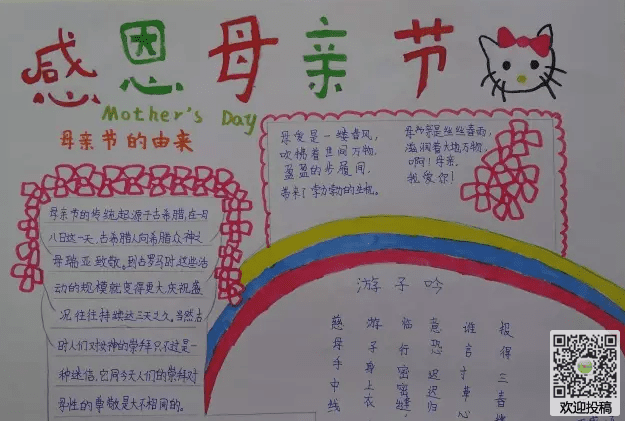 感恩母亲节
Mother's Day
母亲节的由来
母亲节的传统起源于古希腊,在一月
八日这一天,古希腊人向希腊众神之
母瑞亚致敬。到古罗马时,这些活
动的规模就变得更大,庆祝盛
况往往持续达三天之久。当然,古
时人们对女神的崇拜只不过是一
种迷信,它同今天人们的崇拜对
母性的尊敬是大不相同的。
母爱是一缕春风,
吹拂着世间万物,
盈盈的步履间,
带来了勃勃的生机。
母爱是丝丝春雨,
滋润着大地万物,
啊!母亲,
我爱你!
游子吟
慈母手中线
游子身上衣
临行密密缝,
意恐迟迟归
谁言寸草心
报得三春
欢迎投稿